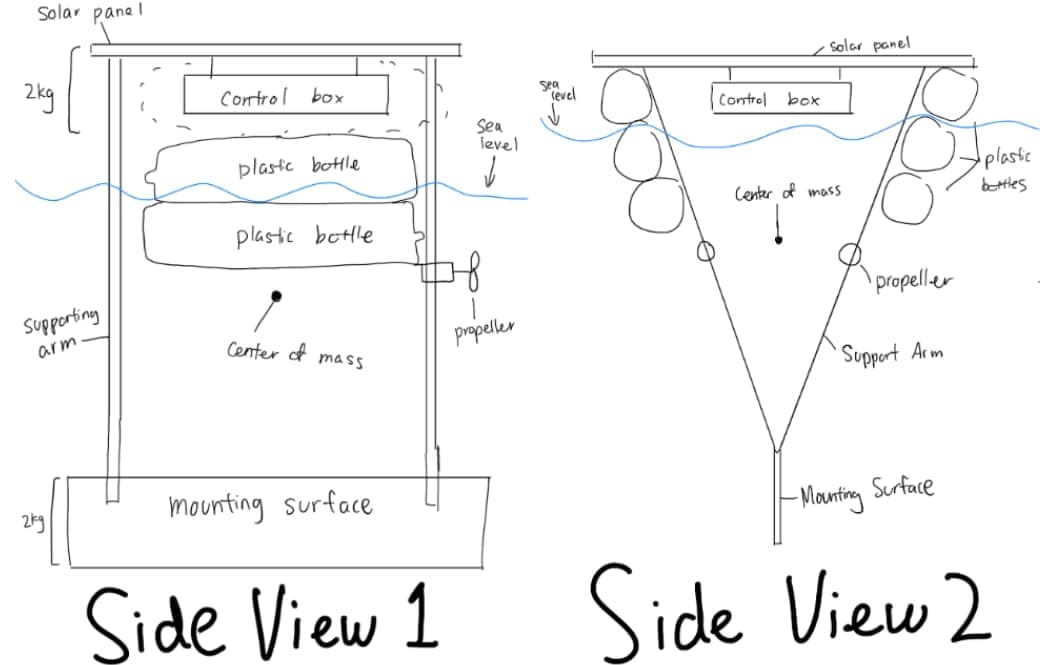 Solar panel
2kg
Control box
Sea
level
plastic bottle
plastic bottle
supporting
arm
propeller
Center of mass
2kg
mounting surface
Side View 1
solar panel
sea
level
Control box
plastic
bottles
Center of mass
propeller
Support Arm
Mounting Surface
Side View 2